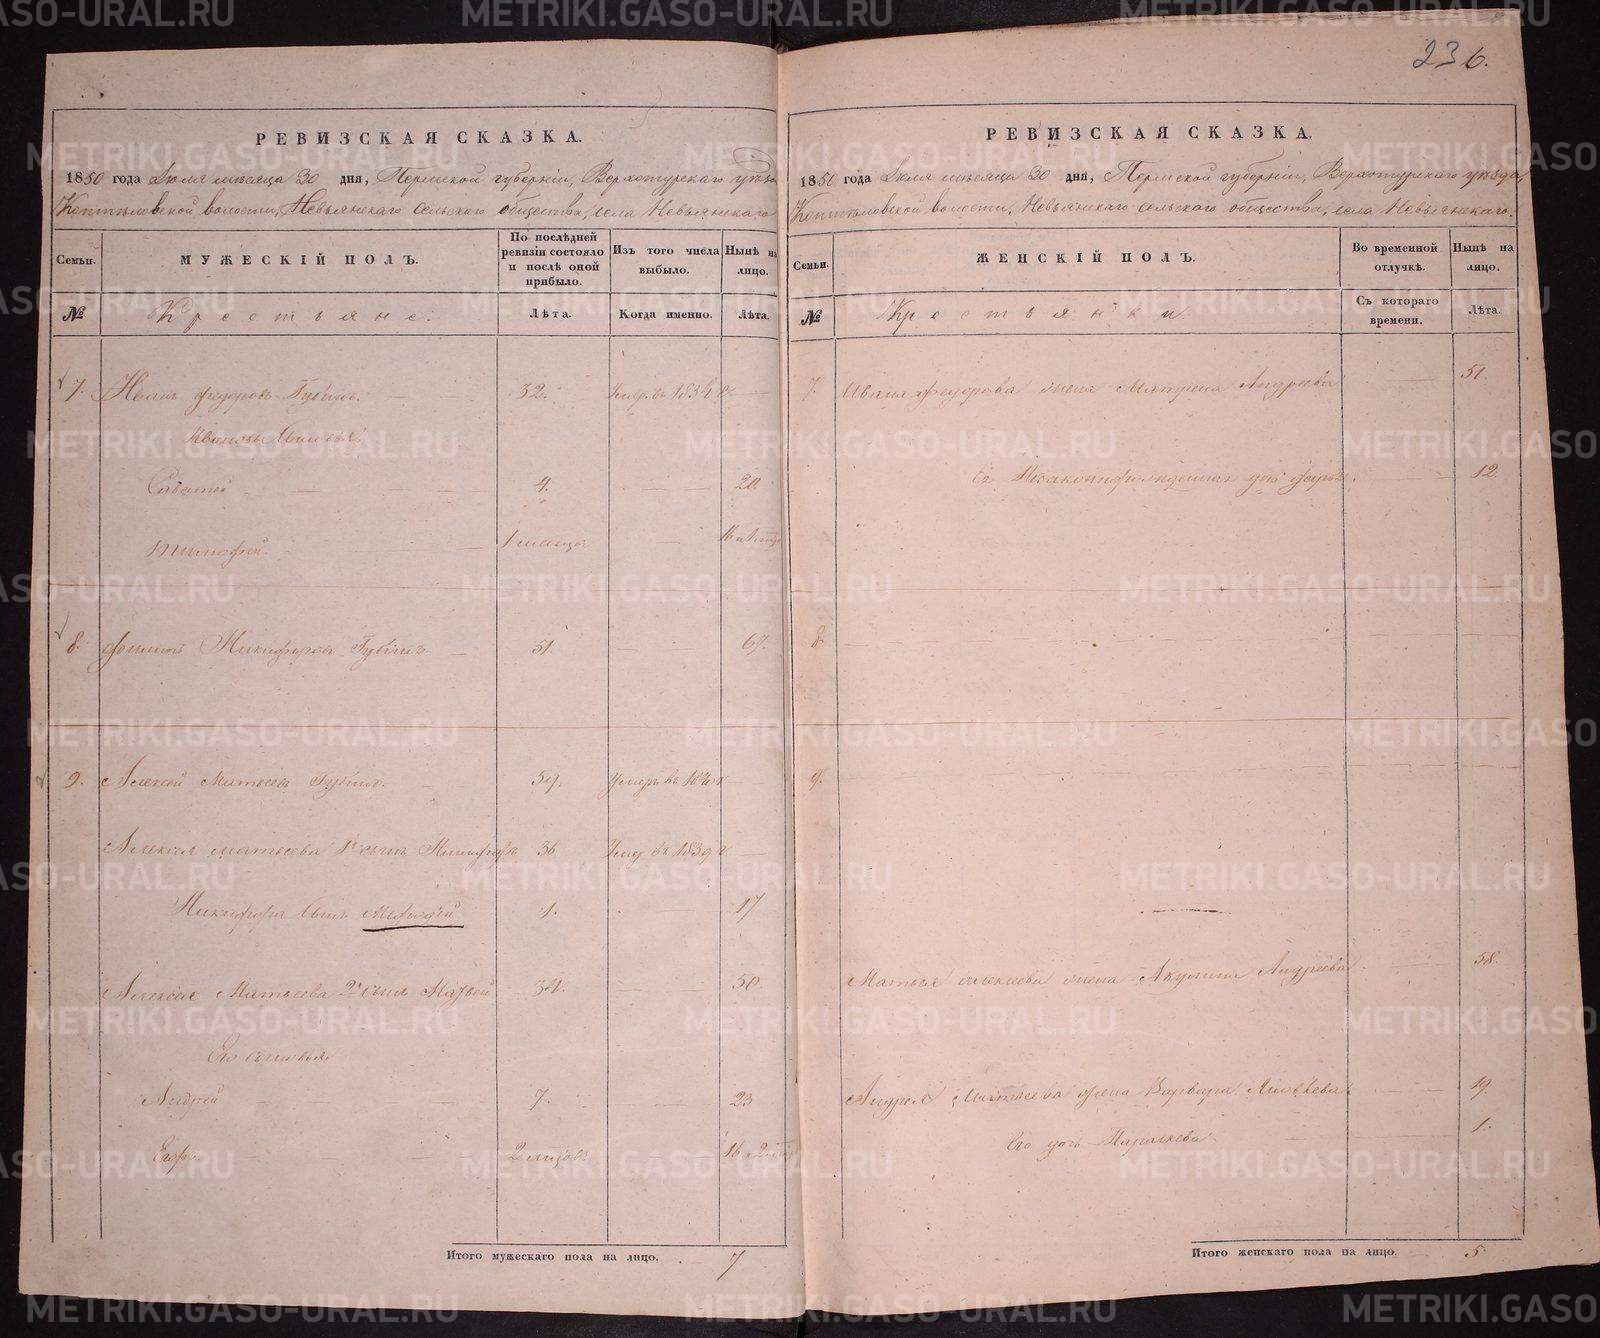 236.
РЕВИЗСКАЯ СКАЗКА.
1850 года Іюля мѣсяца 30 дня, Пермской губерніи, Верхотурскаго уѣзда
Коптѣловской волости, Невьянскаго сельскаго общества, села Невьянскаго
Семьи.
МУЖЕСКІЙ ПОЛЪ.
По послѣдней ревизіи состояло и послѣ оной прибыло.
Изъ того числа выбыло.
Нынѣ на лицо.
№
Крестьяне.
Лѣта.
Когда именно.
Лѣта.
7. Иванъ Федоровъ Губинъ. 32. Умер. въ 1834 г.
Ивановы сыновья.
Саватей 4. 20.
Тимофей. 1 месяца 16
8. Фотинъ Никифоровъ Губинъ. 51. 67.
9. Алексей Матвеевъ Губинъ. 59. Умеръ въ 1840 г
Алексея Матвеева 1й сынъ Никифоръ 36 Умер въ 1839 г
Никифора сынъ Мефодій 1. 17
Алексея Матвеева 2й сынъ Матвей 34. 50.
Его сыновья
Андрей 7. 23
Егоръ. 2 16 и 2
Итого мужескаго пола на лицо. 7
РЕВИЗСКАЯ СКАЗКА.
1850 года Іюля мѣсяца 30 дня, Пермской губерніи, Верхотурскаго уѣзда,
Коптѣловской волости, Невьянскаго сельскаго общества, села Невьянскаго.
Семьи.
ЖЕНСКІЙ ПОЛЪ.
Во временной отлучкѣ.
Нынѣ на лицо.
№
Крестьянки.
Съ котораго времени.
Лѣта.
7. Ивана Федорова жена Матрена Андреева 51
Ея Незаконнорожденная дочь 12.
8.
9.
Матвея Алексеева жена Акулина Андреева 58.
Андрея Матвеева жена Варвара Яковлева 19.
Его дочь Парасковья. 1.
Итого женскаго пола на лицо. 5
METRIKI.GASO-URAL.RU